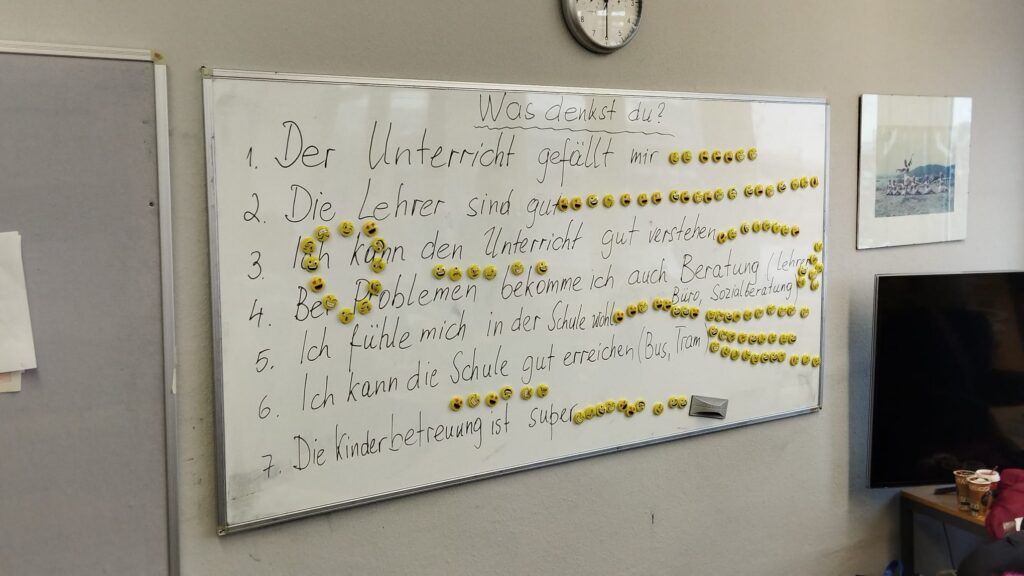 Was denkst du?
1. Der Unterricht gefällt mir
2. Die Lehrer sind gut
3. Ich kann den Unterricht gut verstehen
4. Bei Problemen bekomme ich auch Beratung (Lehrer,
Büro, Sozialberatung)
5. Ich fühle mich in der Schule wohl
6. Ich kann die Schule gut erreichen (Bus, Tram)
7. Die Kinderbetreuung ist super